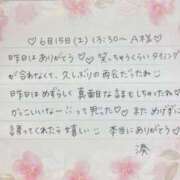 ♡6月15日(土)13:30〜 A様♡
昨日はありがとう♡ 笑っちゃうくらいタイミング
が合わなくて、久しぶりの再会だったね
昨日はめずらしく真剣な話もしちゃったね。
かっこいいなーって思った♡ また めげずに
誘ってくれたら嬉しい 本当にありがとう♡
湊